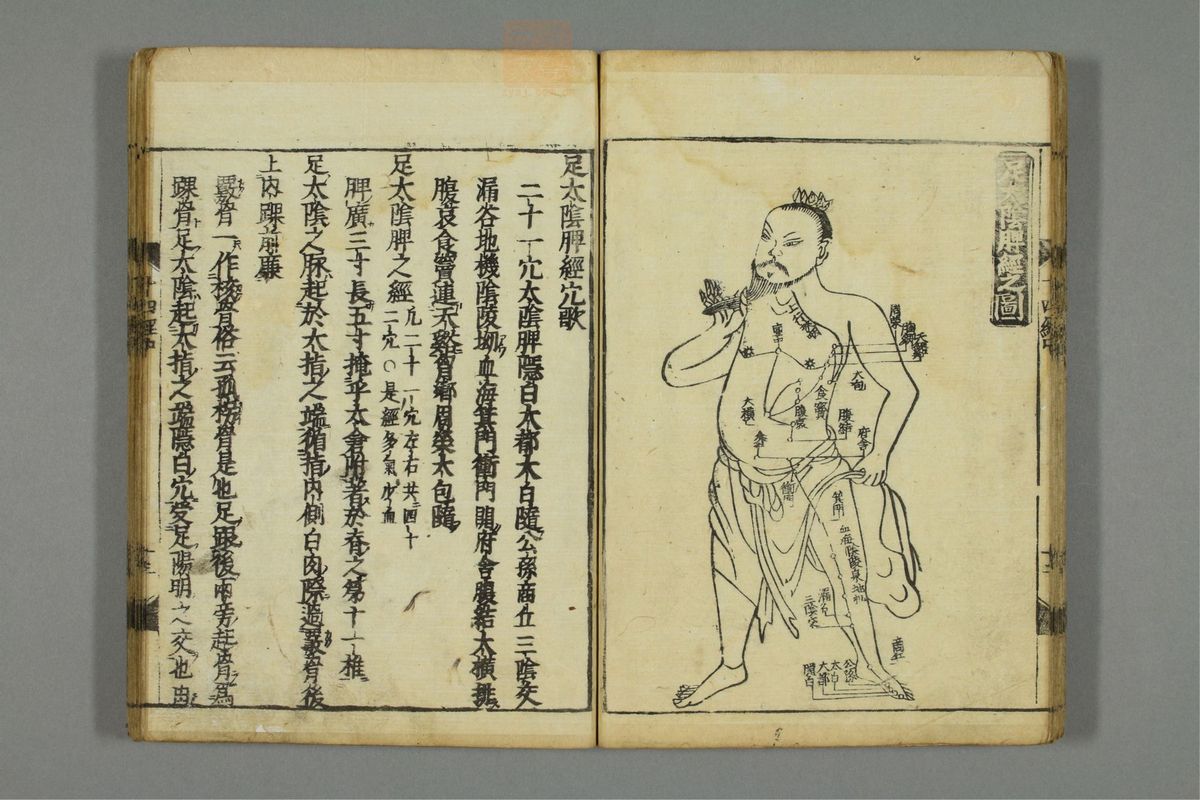 足太陰脾經之圖
周榮
胸鄉
天谿
大包
食竇
腹哀
大橫
腹結
府舍
衝門
箕門
血海
陰陵泉
地机
漏谷
三陰交
商丘
公孫
太白
大都
隱白
足太陰脾經穴歌
二十一穴太陰脾隱白大都太白隨公孫商丘三陰交
漏谷地機陰陵坳血海箕門衝門開府舍腹結大橫排
腹哀食竇連天谿胷鄉周榮大包隨
足太陰脾之經
凡二十一穴左右共四十
二穴○是經多氣少血
脾廣三寸長五寸掩乎太倉附著於脊之第十一椎
足太陰之脉起於大指之端循指内側白肉際過覈骨後
上内踝前廉
覈骨一作核骨俗云孤拐骨是也足跟後兩旁起骨爲
踝骨足太陰起大指之端隱白穴受足陽明之交也由